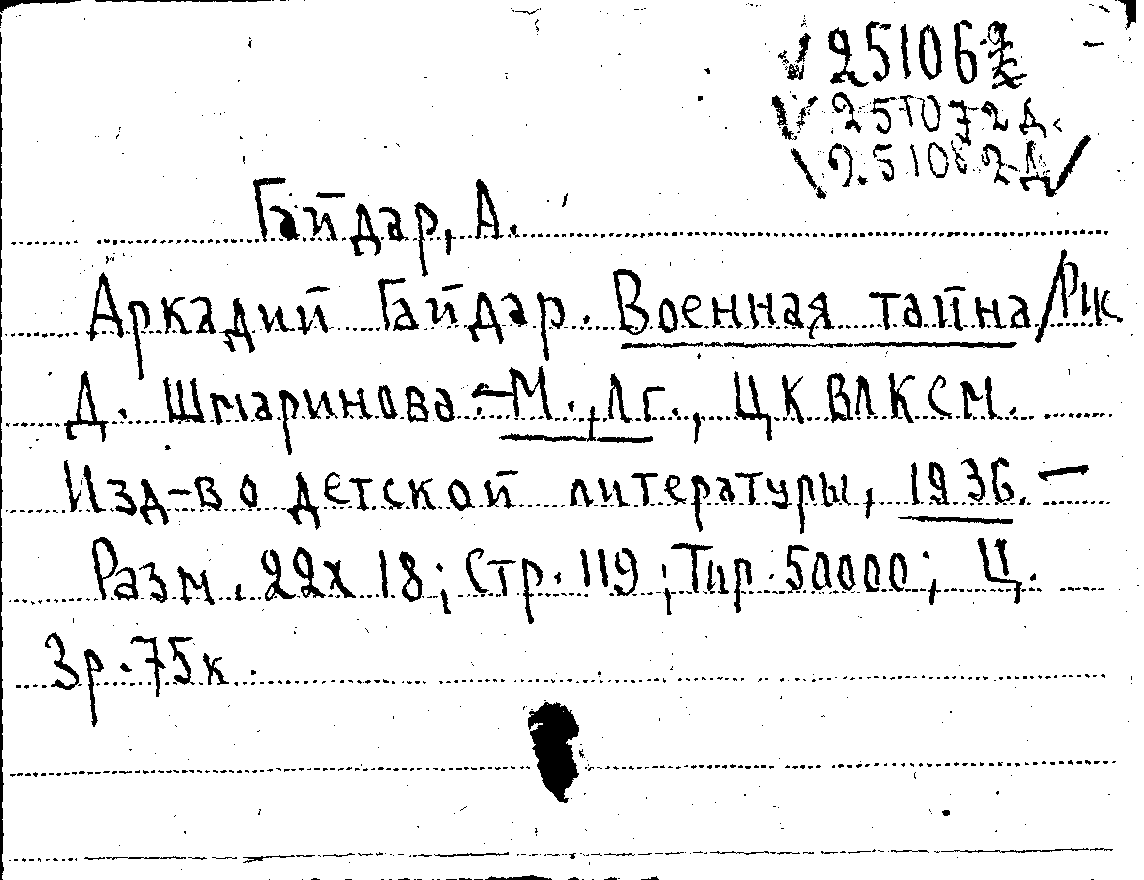 25106
251072 Д.
251082 Д
Гайдар, А.
Аркадий Гайдар. Военная тайна/Рис
Д. Шмаринова.-М., Лг., ЦК ВЛКСМ.
Изд-во детской литературы, 1936. —
Разм. 22х18; Стр. 119; Тир. 50000; Ц.
3р.75к.